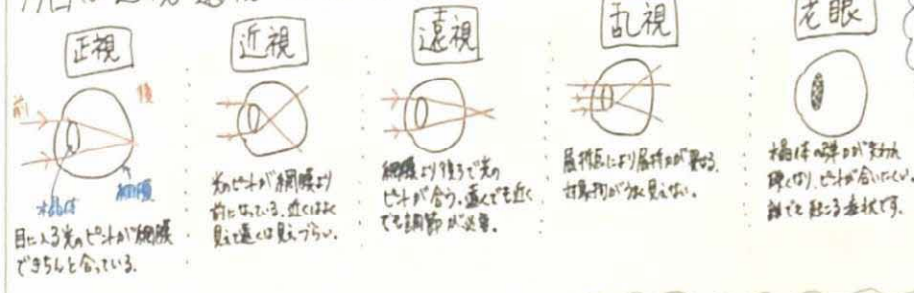 正視
近視
遠視
乱視
老眼
前
後
水晶体
網膜
目に入る光のピントが網膜
できちんと合っている。
光のピントが網膜より
前になっている。近くはよく
見えて遠くは見えづらい。
網膜より後ろで光の
ピントが合う。遠くでも近く
でも調節が必要。
により屈折力が異なる。
対象物が見えない。
水晶体の弾力が失われ
硬くなり、ピントが合いにくい。
誰でも起こる症状です。